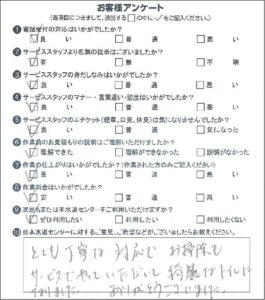 お客様アンケート
(各項目につきまして、該当する□の中に✓をご記入ください。)
❶電話受付の対応はいかがでしたか?
良い 普通 悪い
❷サービススタッフより名刺の提示はございましたか?
有 無 不明
❸サービススタッフの身だしなみはいかがでしたか?
良い 普通 悪い
❹サービススタッフのマナー・言葉遣い・態度はいかがでしたか?
良い 普通 悪い
❺サービススタッフのエチケット(煙草、口臭、体臭)は気になりませんでしたか?
良い 普通 気になった
❻作業員のお見積もりの説明はご理解いただけましたか?
理解できた 理解ができなかった 説明がなかった
❼作業の仕上がりはいかがでしたか?(作業された方のみご記入ください)
良い 普通 悪い
❽作業料金はいかがでしたか?
安い 普通 高い
❾次回も日本水道センターをご利用いただけますか?
ぜひ利用したい 利用したい 利用したくない
❿日本水道センターに対するご意見、ご希望などがございましたらお書きください。
とても丁寧な対応で お掃除も
サービスでやっていただいて 綺麗なトイレに
なりました。 ありがとうございました。